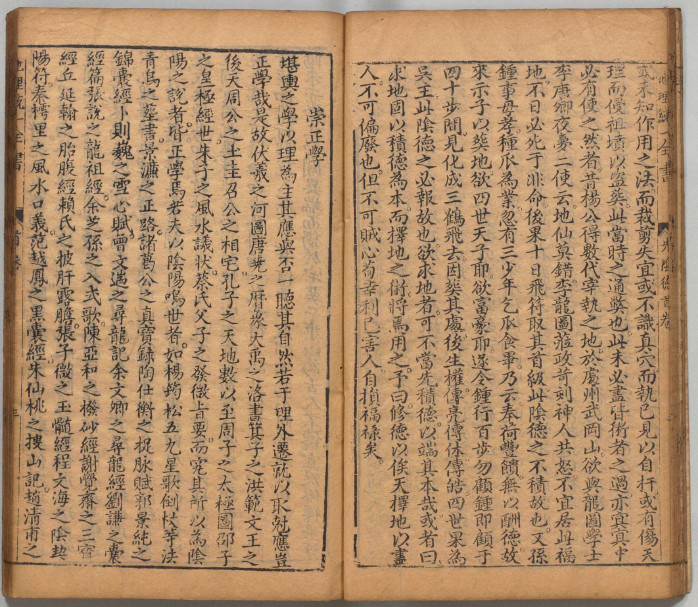 亦未知作用之法而裁剪失宜或不識真穴而執己見以自扞或有傷天
理而侵祖墳以盜葬此當時之通獘也此未必盡皆術者之過亦冥冥中
必有使之然者昔楊公得數代宰執之地於處州武岡山欲與龍圖學士
李唐卿夜夢二使云地仙莫錯李龍圖蒞政苛刻神人共怒不宜居此福
地不日必死于非命後果十日飛符取其首級此陰德之不積故也又孫
鍾事母孝種瓜為業忽有三少年乞瓜食畢乃云奉荷豐饋無以酬德故
來示子以葬地欲四世天子即欲富豪即遂令鍾行百步勿顧鍾即顧于
四十步間見化成三鶴飛去因葬其處後生權傳亮傳休傳皓四世果為
吳王此陰德之必報故也欲求地者可不當先積德以端其本哉或者曰
求地固以積德為本而擇地之術將焉用之予曰修德以俟天擇地以盡
人不可偏廢也但不可賊心苟幸利己害人自損福祿矣
崇正學
堪輿之學以理為主其應與否一聽其自然若于理外遷就以取効應豈
正學哉是故伏羲之河圖唐堯之曆象大禹之洛書箕子之洪範文王之
後天周公之土圭召公之相宅孔子之天地數以至周子之太極圖邵子
之皇極經世朱子之風水議狀蔡氏父子之發微旨要而究其所以為陰
陽之說者非正學焉若夫以陰陽鳴世者如楊筠松五九星歌倒杖等法
青烏之葬書景濂之正路諸葛公之真寶錄陶仕衡之捉脉賦郭景純之
錦囊經卜則巍之雪心賦曾文遄之尋龍記余文卿之尋龍經劉謙之囊
經篇張說之龍祖經余芝孫之入式歌陳亞和之撥砂經謝覺齋之三寶
經丘延翰之胎腹經賴氏之披肝露膽張子微之玉髓經程文海之陰契
陽符秦樗里之風水口義范越鳳之黑囊經朱仙桃之搜山記趙清甫之